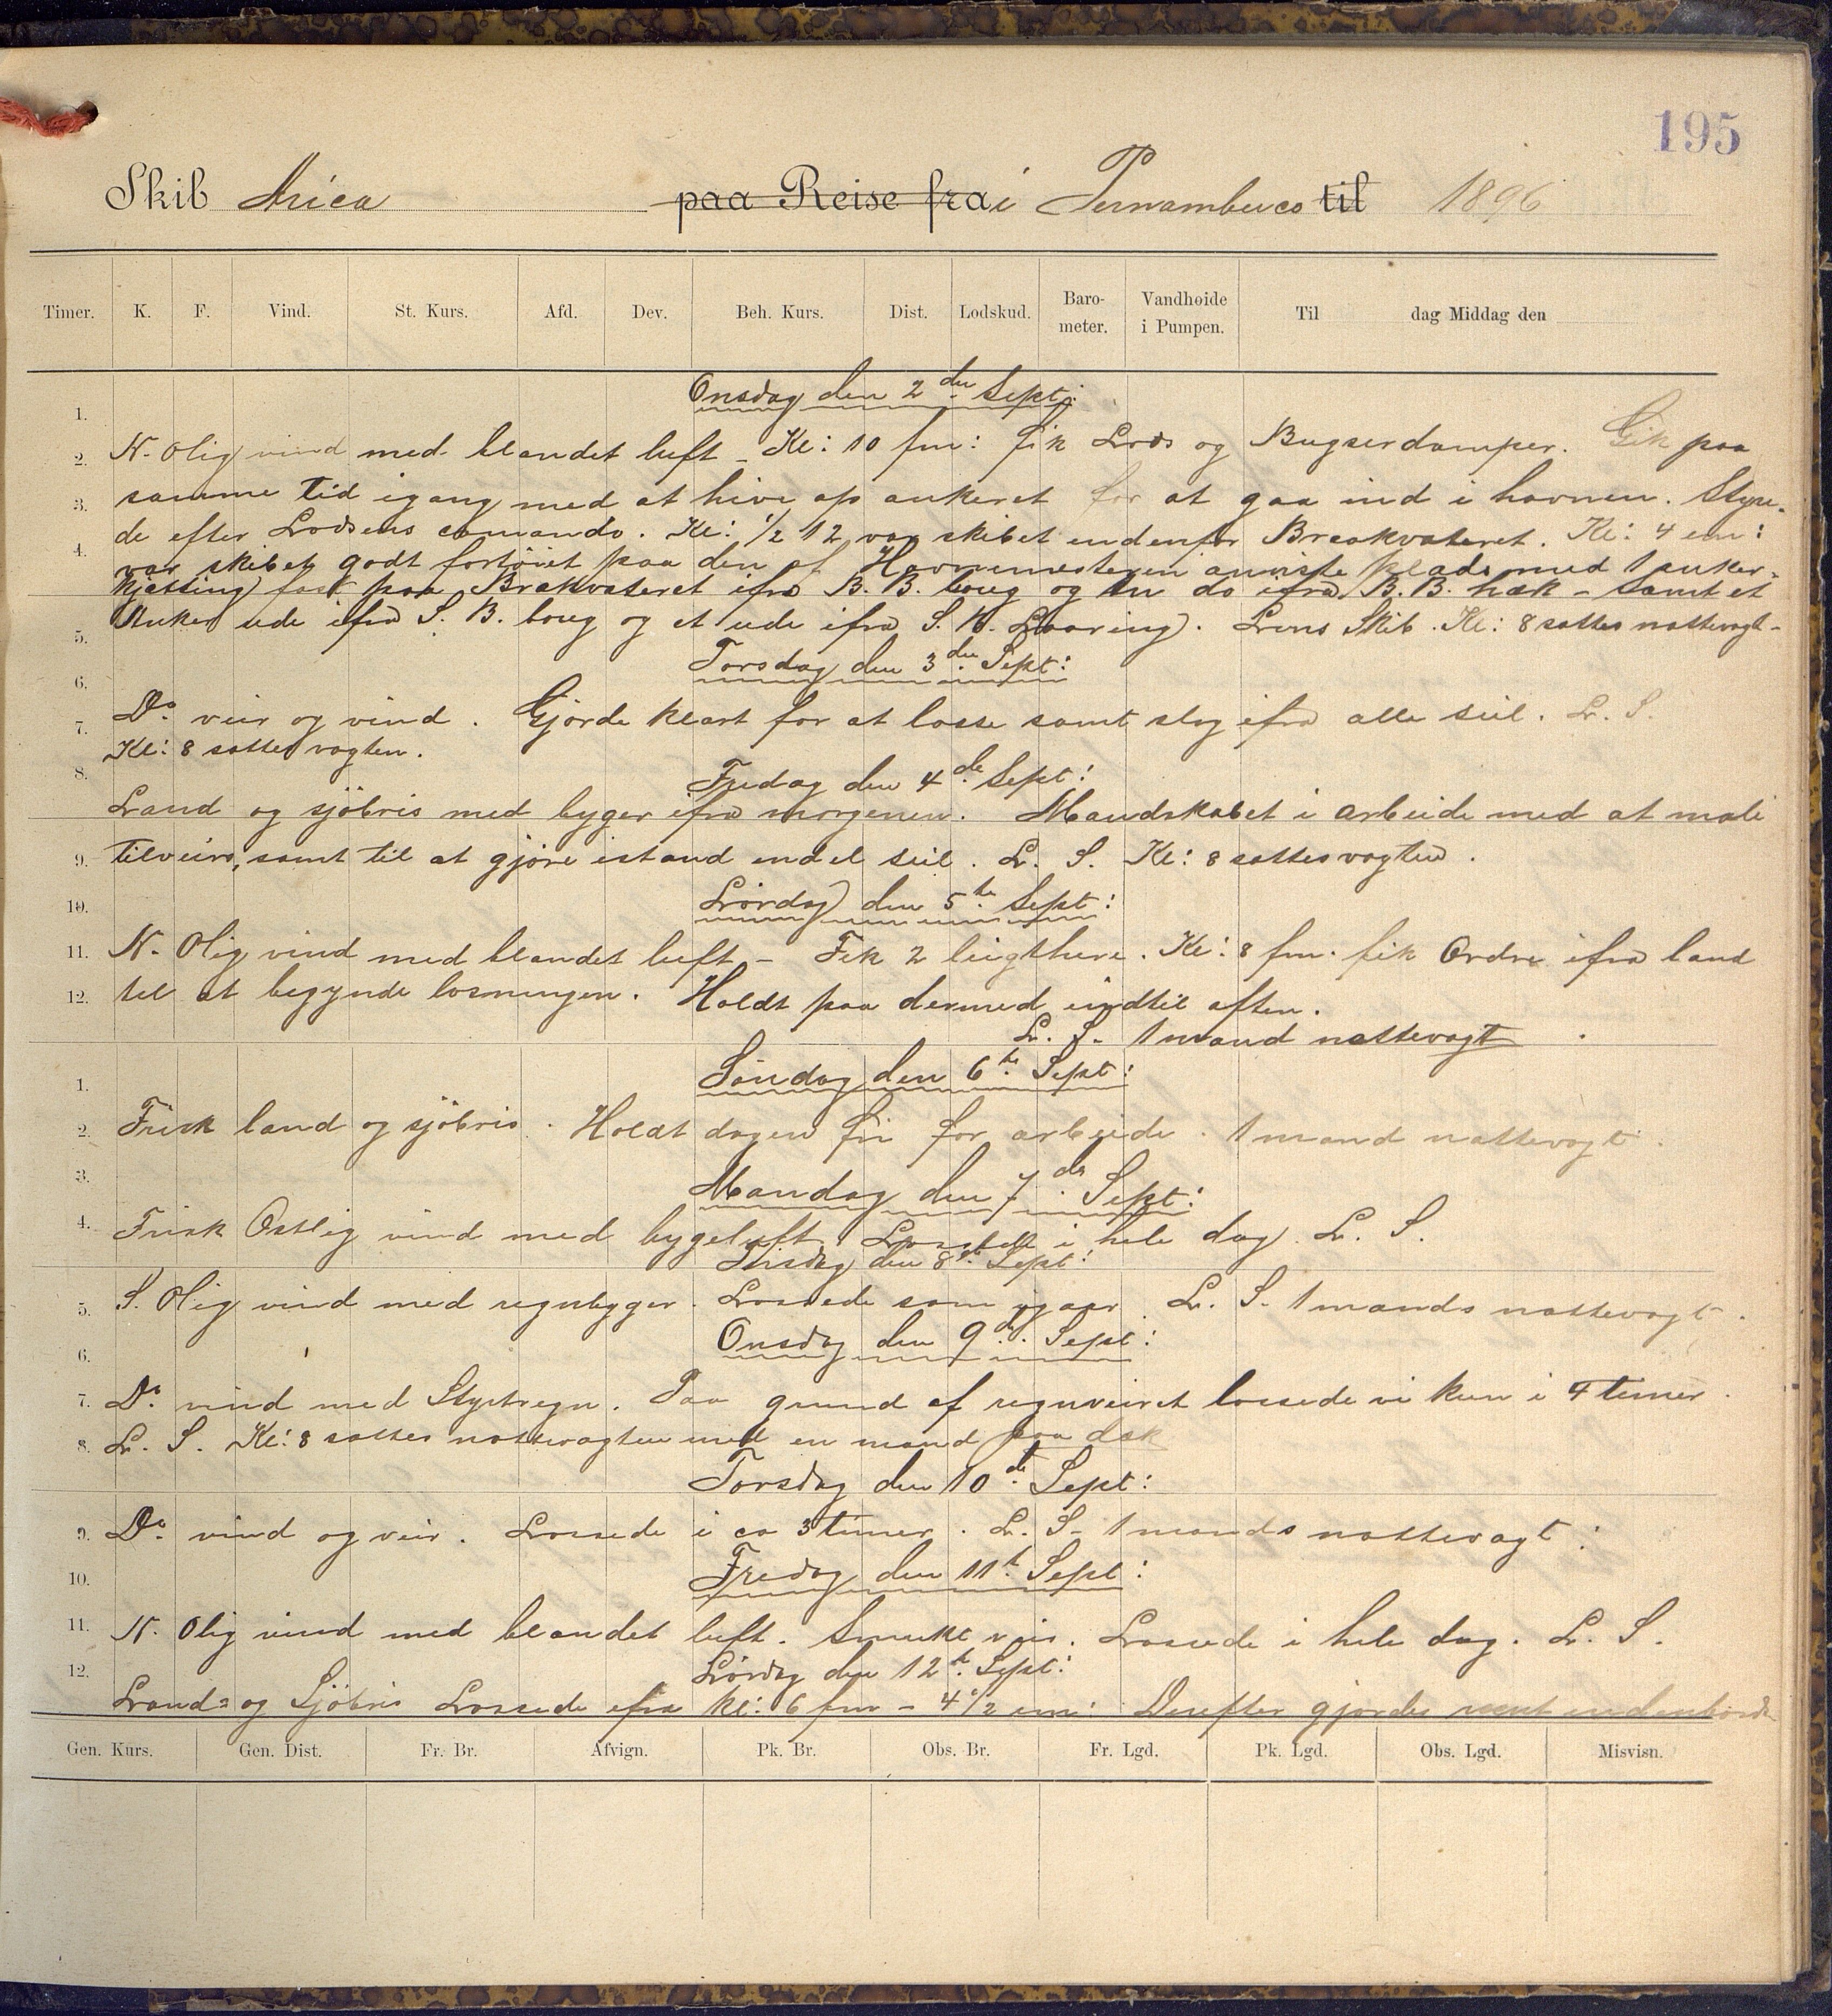 195
Skib Arica paa Reise fra i Pernambuco til 1896
Timer. K. F. Vind. St. Kurs. Afd. Dev. Beh. Kurs. Dist. Lodskud. Baro-meter. Vandhoide i Pumpen. Til dag Middag den
Onsdag den 2den Sept:
1.
2. N. Olig vind med blandet luft - Kl: 10 fm: fik Lods og Bugserdamper. Gik paa
3. samme tid igang med at hive op ankeret for at gaa ind i havnen. Styre-
de efter Lodsens comando. Kl: 1/2 12 var skibet indenfor Breakvateret. Kl: 4 em:
4. var skibet godt fortöiet paa den af Havnemesteren anviste plads med 1 anker-
kjætting fast paa Brekvateret ifra B. B. boug og en do ifra B. B. hæk - samt et
5. Anker ude ifra S. B. boug og et ude ifra S. B. Laaring. Lens Skib. Kl: 8 sattes nattevagt-
Torsdag den 3den Sept:
6.
7. Do veir og vind. Gjorde klart for at losse samt slog ifra alle seil. L. S.
Kl: 8 sattes vagten.
8. Fredag den 4de Sept:
Land og sjöbris med byger ifra morgenen. Mandskabet i arbeide med at male
9. tilveirs, samt til at gjöre istand endel seil. L. S. Kl: 8 sattes vagten.
10. Lördag den 5te Sept:
11. N. Olig vind med blandet luft - Fik 2 leigthere. Kl: 8 fm. fik Ordre ifra land
12. til at begynde losningen. Holdt paa dermed indtil aften.
L. S. 1 mand nattevagt.
Söndag den 6te Sept:
1.
2. Frisk land og sjöbris. Holdt dagen fri for arbeide. 1 mand nattevagt.
3. Mandag den 7de Sept:
4. Frisk Ostlig vind med bygeluft. Lossede i hele dag. L. S.
Tirsdag den 8de Sept:
5. S. Olig vind med regnbyger. Lossede som igaar. L. S. 1 mands nattevagt.
Onsdag den 9de Sept:
6.
7. Do vind med Styrtregn. Paa grund af regnveiret lossede vi kun i 4 timer.
8. L. S. Kl: 8 sattes nattevagten med en mand paa dæk
Torsdag den 10de Sept:
9. Do vind og veir. Lossede i ca 3 timer. L. S. 1 mands nattevagt:
10. Fredag den 11te Sept:
11. N. Olig vind med blandet luft. Smukt veir. Lossede i hele dag. L. S.
12. Lördag den 12te Sept:
Land- og Sjöbris Lossede ifra kl: 6 fm - 4 1/2 em: Derefter gjordes rent indenbords
Gen. Kurs. Gen. Dist. Fr. Br. Afvign. Pk. Br. Obs. Br. Fr. Lgd. Pk. Lgd. Obs. Lgd. Misvisn.